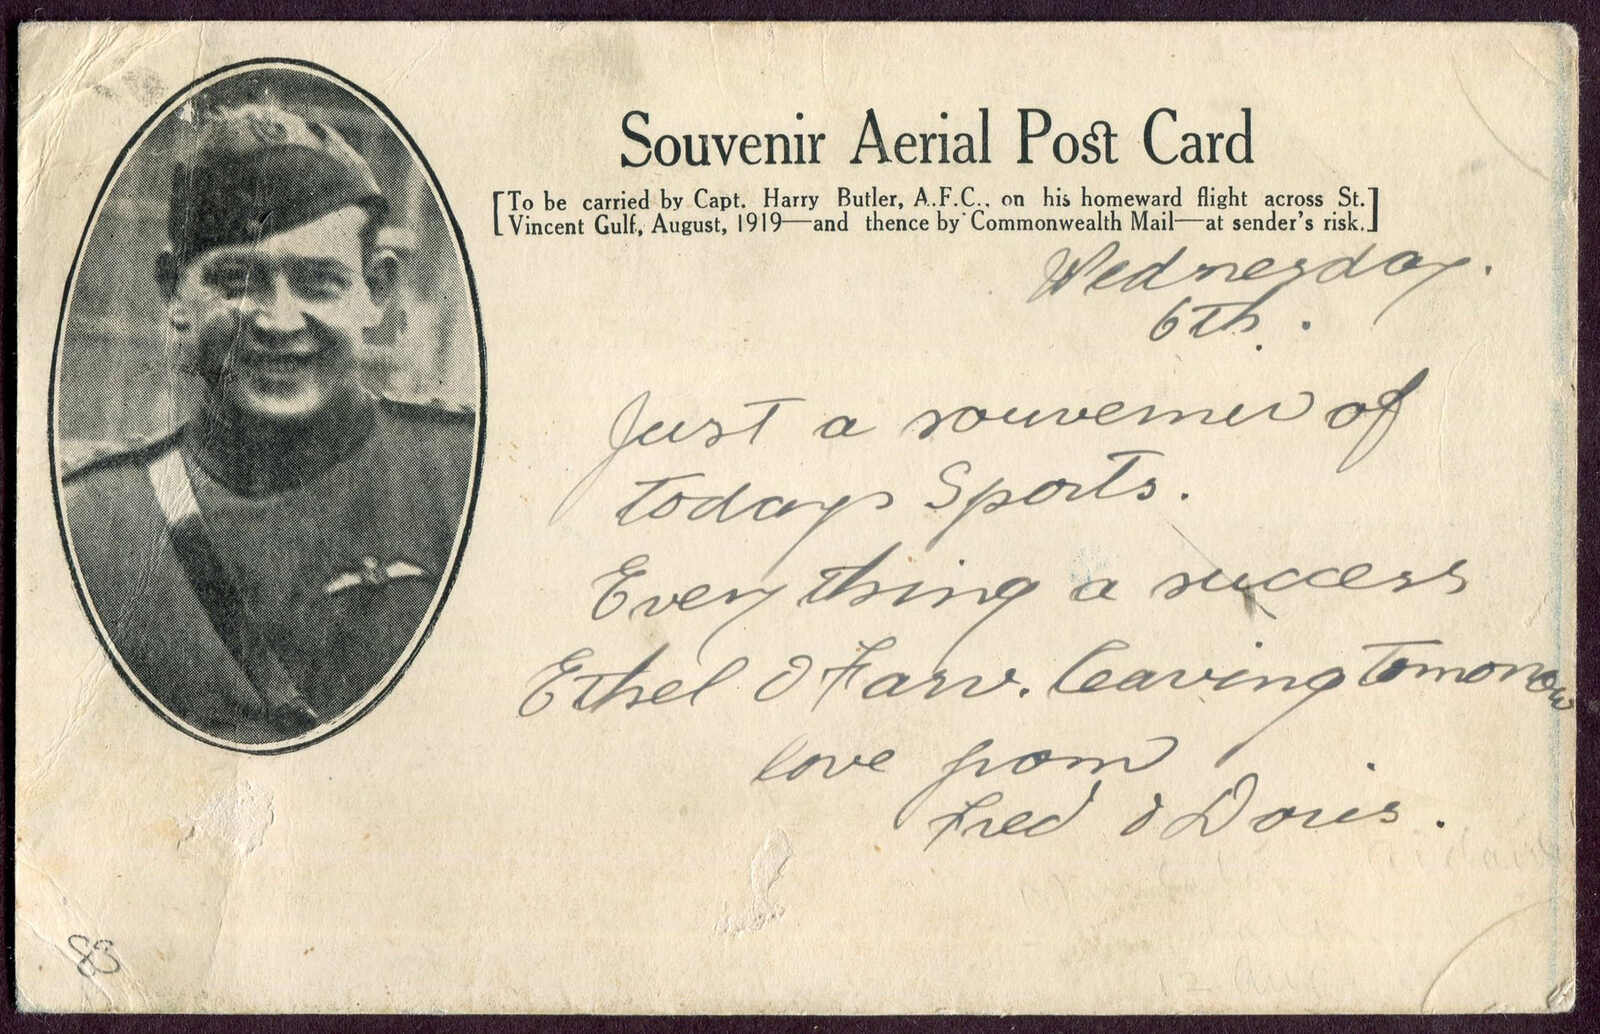 Souvenir Aerial Post Card
[To be carried by Capt. Harry Butler, A.F.C., on his homeward flight across St.
Vincent Gulf, August, 1919—and thence by Commonwealth Mail—at sender's risk.]
Wednesday.
6th.
Just a souvenier of
todays Sports.
Everything a success
Ethel & Farv. leaving tomorrow
love from
Fred & Doris.
83